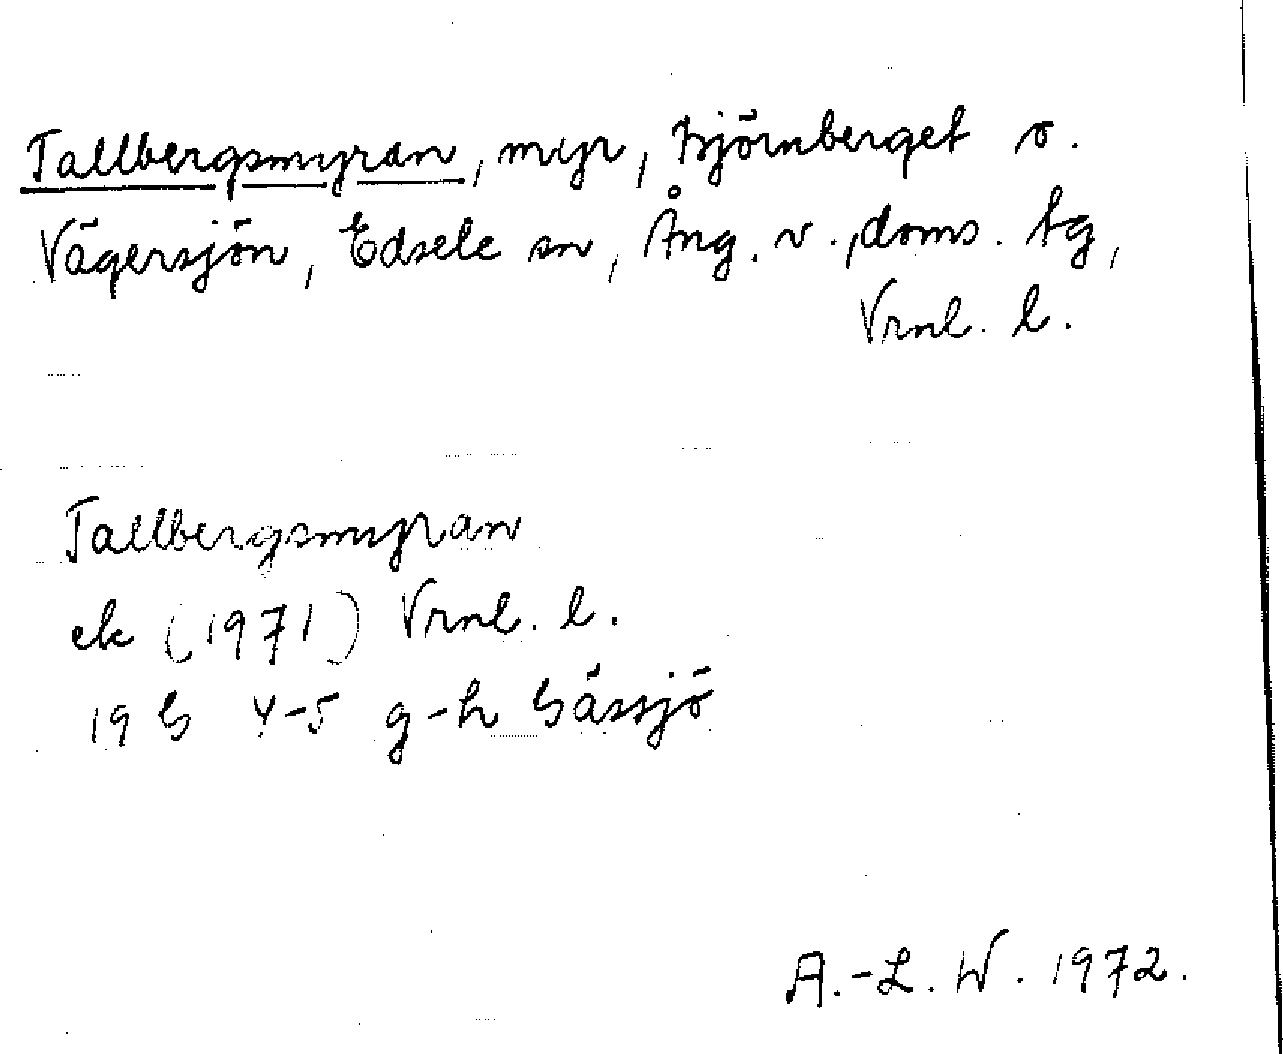 Tallbergsmyran, myr, Björnberget o.
Vägersjön, Edsele sn, Ång. v., doms. tg,
Vrnl. l.
Tallbergsmyran
ek (1971) Vrnl. l.
19 G 4-5 g-h Gåssjö
A.-L. W. 1972.